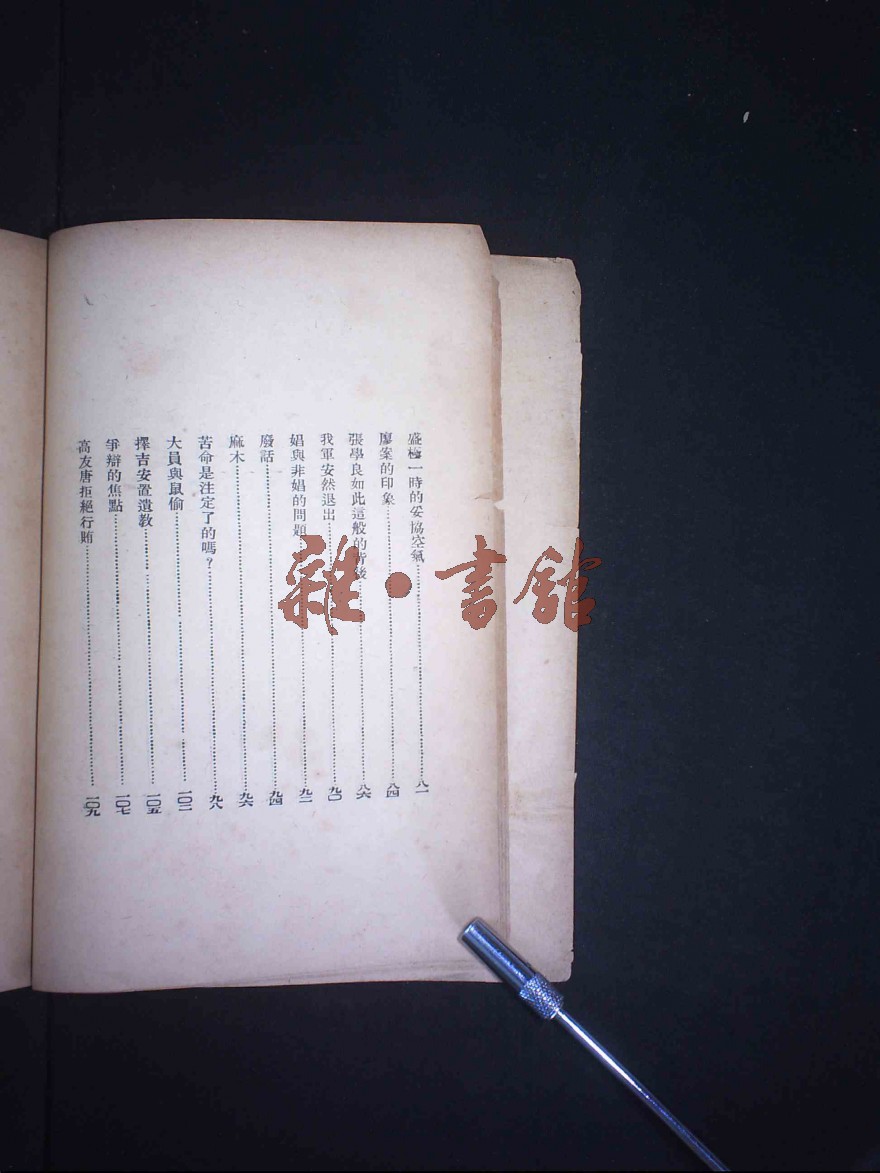 盛極一時的妥協空氣……八一
廖案的印象……八四
張學良如此這般的背後……八六
我軍安然退出……九〇
娼與非娼的問題……九二
廢話……九四
麻木……九六
苦命是注定了的嗎？……九八
大員與鼠偷……一〇二
擇吉安置遺教……一〇五
爭辯的焦點……一〇七
高友唐拒絕行賄……一〇九
雜·書館